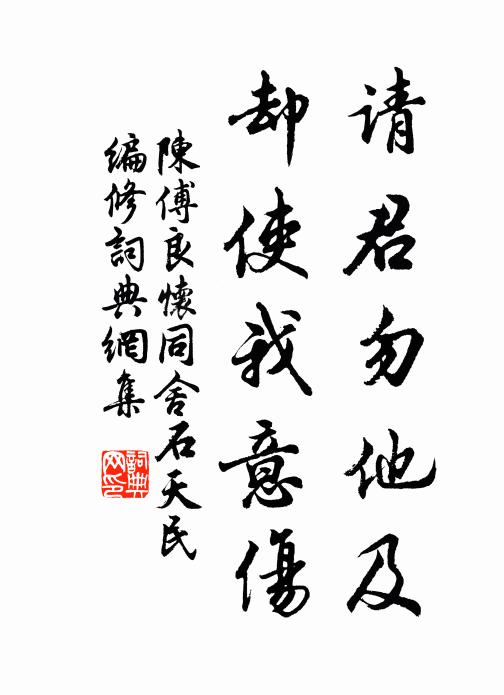 请君勿他及
却使我意傷
陳傅良懷同舍石天民
编修詞典網集
詞典網印